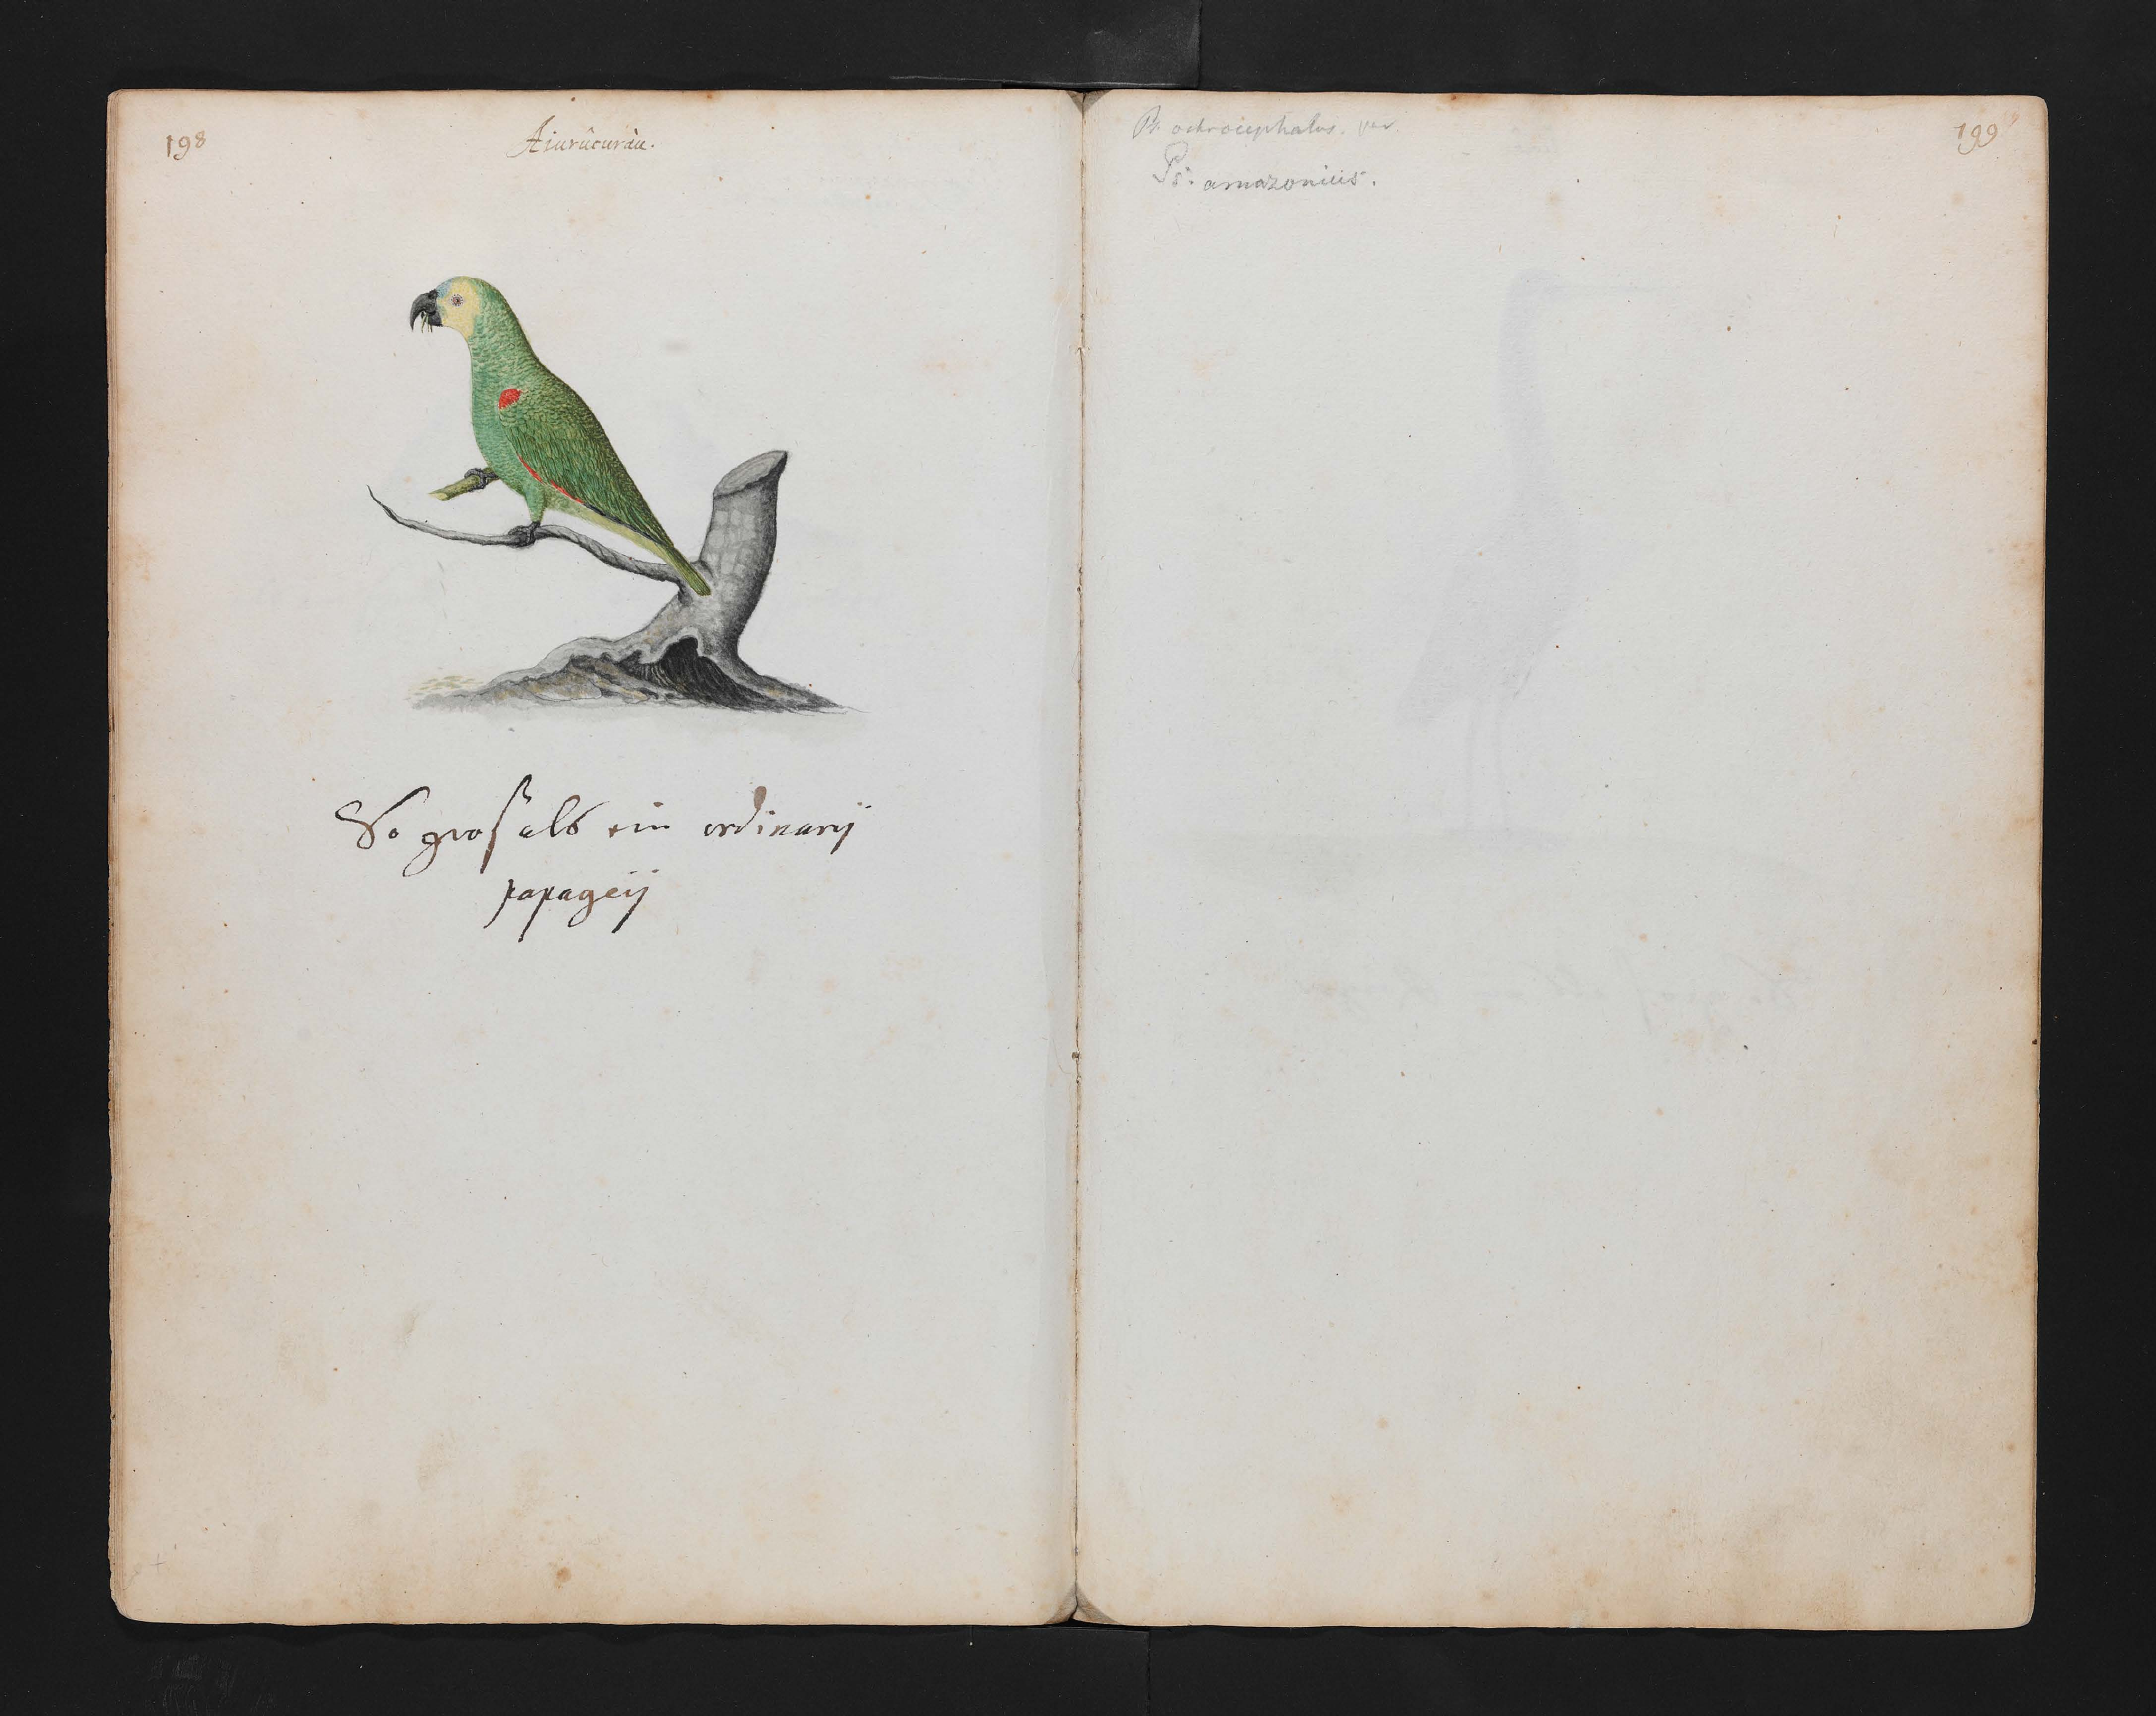 198
Aiurûcuraù.
So groß alß ein ordinarij
papageij
Ps. ochrocephalus. var.
Ps. amazonicus.
199